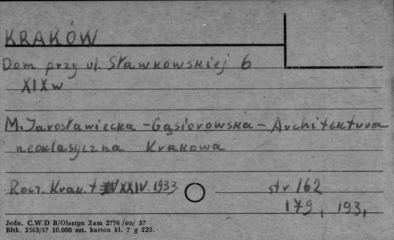 KRAKÓW
Dom przy ul. Sławkowskiej 6
XIXw
M. Jarosławiecka - Gąsiorowska - Architektura
neoklasyczna Krakowa
Rocz. Krak. t XXIV. 1933 str 162
179, 193,
Jedn. C.W.D B/Olsztyn Zam 2776 /on/ 57
Błtk. 2563/57 10.000 szt. karton kl. 7 g 220.